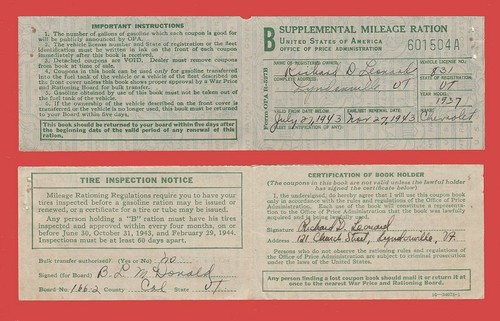 IMPORTANT INSTRUCTIONS
1. The number of gallons of gasoline which each coupon is good for
will be publicly announced by OPA.
2. The vehicle license number and State of registration or the fleet
identification must be written in ink on the front of each coupon
immediately after this book is issued.
3. Detached coupons are VOID. Dealer must remove coupons
from book at time of sale.
4. Coupons in this book can be used only for gasoline transferred
into the fuel tank of the vehicle or a vehicle of the fleet described on the
front cover unless there is given above approval by a War Price
and Rationing Board for bulk transfer.
5. Gasoline obtained by use of this book must not be taken out of
the fuel tank of the vehicle.
6. If the ownership of the vehicle described on the front cover is
transferred or the vehicle is no longer used, this book must be returned to
your Board within five days.
This book should be returned to your board within five days after
the beginning date of the valid period of any renewal of this
ration.
Form OPA R-527B
B SUPPLEMENTAL MILEAGE RATION
UNITED STATES OF AMERICA
OFFICE OF PRICE ADMINISTRATION
601504A
NAME OF REGISTERED OWNER
Richard D Leonard
VEHICLE LICENSE NO.
831
Lyndonville VT
STATE OF REGISTRATION
VT
VALID FROM
EARLIEST RENEWAL DATE
YEAR MODEL
1937
July 27, 1943
Nov 27, 1943
MAKE
Chevrolet
FLEET IDENTIFICATION (IF ANY)
TIRE INSPECTION NOTICE
Mileage Rationing Regulations require you to have your
tires inspected before a gasoline ration may be issued or
renewed, or a certificate for a tire or tube may be issued.
Any person holding a "B" ration must have his tires
inspected and approved within every four months, on or
before June 30, October 31, 1943, and February 29, 1944.
Inspections must be at least 60 days apart.
Bulk transfer authorized? (Yes or No) no
Signed (for Board) B. L McDonald
Board No. 166.2 County Cal State VT
CERTIFICATION OF BOOK HOLDER
(The coupons in this book are not valid unless the lawful holder
has signed the certificate below)
I, the undersigned, do hereby agree that I will use this coupon book
only in accordance with the rules and regulations of the Office of Price
Administration. Each use of the book will constitute a representation
to the Office of Price Administration that the book was lawfully
acquired and is being lawfully used.
Signature Richard D. Leonard
Address 121 Church Street, Lyndonville, Vt.
Persons who do not observe the rationing rules and regulations of
the Office of Price Administration may be denied gasoline.
Any person finding a lost coupon book should mail it or return it at
once to the nearest War Price and Rationing Board.